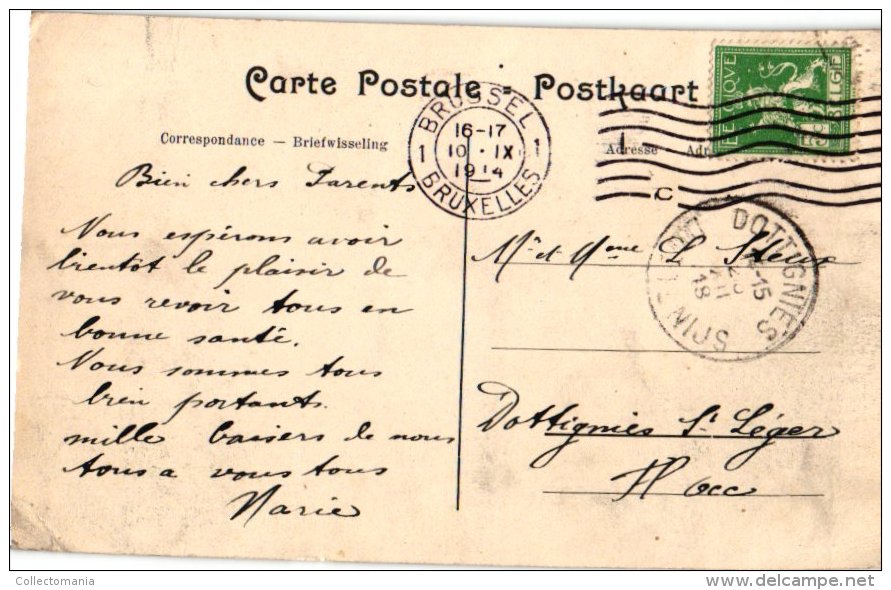 Carte Postale = Postkaart
Correspondance — Briefwisseling
Adresse
BRUSSEL
1 16-17 1
10 · IX
1914
BRUXELLES
BELGIE
C
DOTTIGNIES
-15
18
Bien chers Parents
Nous espérons avoir
bientot le plaisir de
vous revoir tous en
bonne santé.
Nous sommes tous
bien portants.
mille baisers de nous
tous a vous tous
Marie
Mr et Mme
Dottignies St Léger
Fl occ
Collectomania
delcampe.net